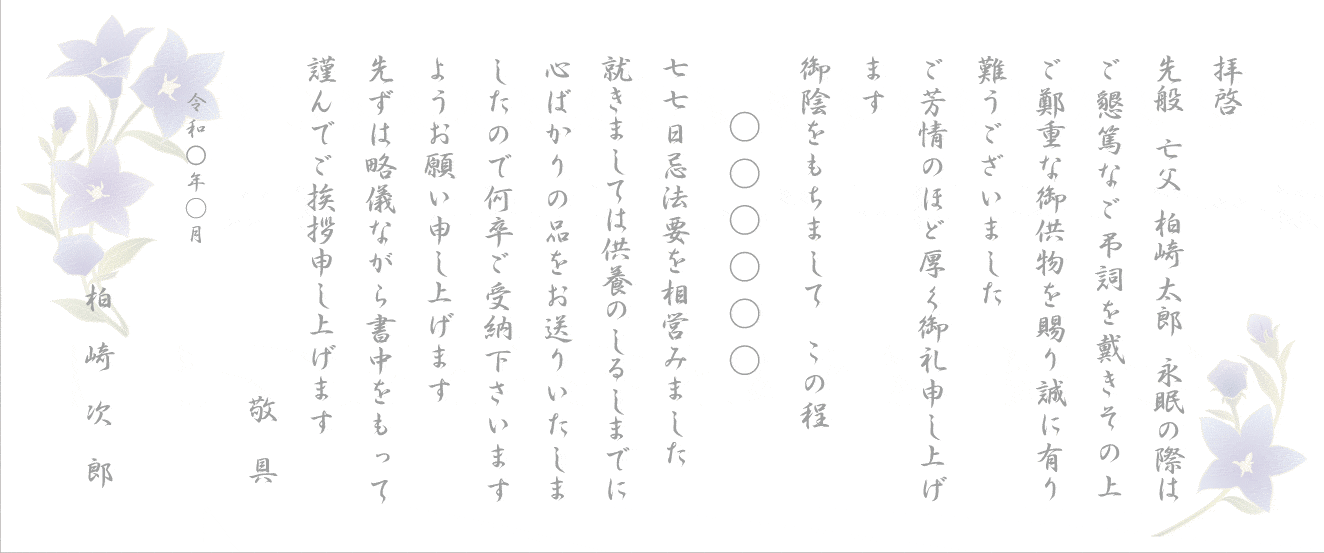 拝啓
先般 亡父 柏崎太郎 永眠の際は
ご懇篤なご弔詞を戴きその上
ご鄭重な御供物を賜り誠に有り
難うございました
ご芳情のほど厚く御礼申し上げ
ます
御陰をもちまして この程
〇〇〇〇〇〇
七七日忌法要を相営みました
就きましては供養のしるしまでに
心ばかりの品をお送りいたしま
したので何卒ご受納下さいます
ようお願い申し上げます
先ずは略儀ながら書中をもって
謹んでご挨拶申し上げます
敬具
令和〇年〇月
柏崎次郎